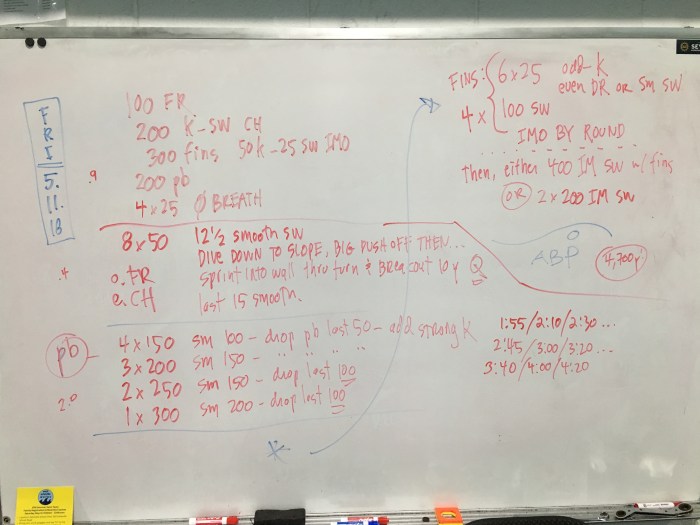 FRI
5.
11.
18
100 FR
200 K-SW CH
300 fins 50K-25 SW IMO
200 pb
4x25 Ø BREATH
.9
8x50 12 1/2 smooth sw
DIVE DOWN TO SLOPE, BIG PUSH OFF THEN...
o.FR sprint into wall thru turn & Breakout 10y Q
e.CH last 15 smooth.
.4
pb
4x150 sm 100 - drop pb last 50 - add strong K
3x200 sm 150 - " " " "
2x250 sm 150 - drop last 100
1x300 sm 200 - drop last 100
2.0
FINS: 6x25 odd-K
even DR or Sm SW
4x 100 SW
IMO BY ROUND
then, either 400 IM SW w/ fins
OR 2x200 IM SW
ABP
4,700y
1:55/2:10/2:30...
2:45/3:00/3:20...
3:40/4:00/4:20